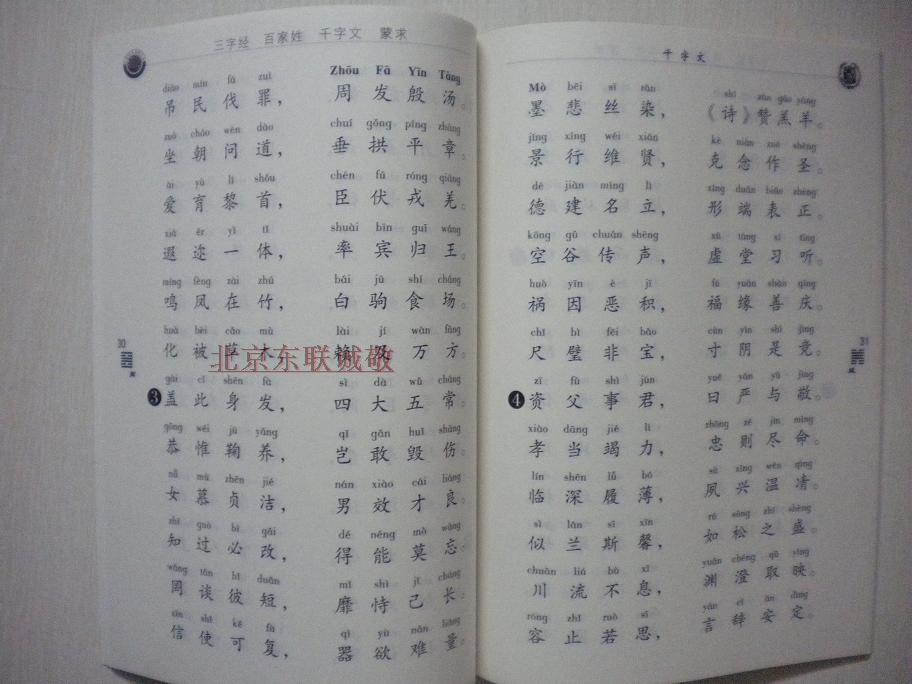 三字经 百家姓 千字文 蒙求
diào mín fá zuì Zhōu Fā Yīn Tāng
吊民伐罪，周发殷汤。
zuò cháo wèn dào chuí gǒng píng zhāng
坐朝问道，垂拱平章。
ài yù lí shǒu chén fú róng qiāng
爱育黎首，臣伏戎羌。
xiá ěr yì tǐ shuài bīn guī wáng
遐迩一体，率宾归王。
míng fèng zài zhú bái jū shí cháng
鸣凤在竹，白驹食场。
huà bèi cǎo mù lài jí wàn fāng
化被草木，赖及万方。
gài cǐ shēn fà sì dà wǔ cháng
3 盖此身发，四大五常。
gōng wéi jū yǎng qǐ gǎn huǐ shāng
恭惟鞠养，岂敢毁伤。
nǚ mù zhēn jié nán xiào cái liáng
女慕贞洁，男效才良。
zhī guò bì gǎi dé néng mò wàng
知过必改，得能莫忘。
wǎng tán bǐ duǎn mǐ shì jǐ cháng
罔谈彼短，靡恃己长。
xìn shǐ kě fù qì yù nán liáng
信使可复，器欲难量。
30
北京东联诚敬
千字文
Mò bēi sī rǎn shī zàn gāo yáng
墨悲丝染，《诗》赞羔羊。
jǐng xíng wéi xián kè niàn zuò shèng
景行维贤，克念作圣。
dé jiàn míng lì xíng duān biǎo zhèng
德建名立，形端表正。
kōng gǔ chuán shēng xū táng xí tīng
空谷传声，虚堂习听。
huò yīn è jī fú yuán shàn qìng
祸因恶积，福缘善庆。
chǐ bì fēi bǎo cùn yīn shì jìng
尺璧非宝，寸阴是竞。
zī fù shì jūn yuē yán yǔ jìng
4 资父事君，曰严与敬。
xiào dāng jié lì zhōng zé jìn mìng
孝当竭力，忠则尽命。
lín shēn lǚ bó sù xīng wēn qìng
临深履薄，夙兴温凊。
sì lán sī xīn rú sōng zhī shèng
似兰斯馨，如松之盛。
chuān liú bù xī yuān chéng qǔ yìng
川流不息，渊澄取映。
róng zhǐ ruò sī yán cí ān dìng
容止若思，言辞安定。
31